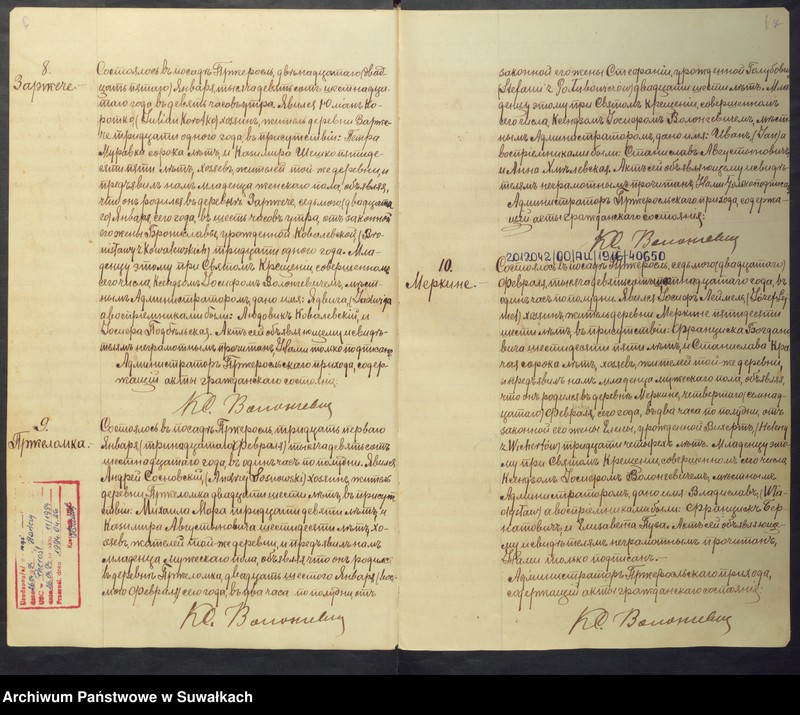 8.
Заржече.
Состоялось въ посадѣ Пржеросль, двѣнадцатаго (двад-
цать пятаго) Января, тысяча девятьсотъ шестнадца-
таго года, въ девять часовъ утра. Явился Юліанъ Ко-
ротко (Julian Korotko) хозяинъ, житель деревни Зарже-
че тридцати одного года, въ присутствіи: Петра
Муравка сорока лѣтъ, и Казимира Шешко пятиде-
сяти пяти лѣтъ, хозяевъ, жителей той же деревни, и
предъявилъ намъ младенца женскаго пола, объявляя,
что онъ родился въ деревнѣ Заржече, седьмого (двадцата-
го) Января, сего года, въ шесть часовъ утра, отъ законной
его жены Брониславы, урожденной Ковалевской (Bro-
nisławy z Kowalewskich) тридцати одного года. Мла-
денцу этому при Святомъ Крещеніи, совершенномъ
сего числа, Ксендзомъ Іосифомъ Волонгевичемъ, мѣст-
нымъ Администраторомъ, дано имя: Ядвига, (Jadwiga)
а воспріемниками были: Людовикъ Ковалевскій, и
Іосифа Подбѣльская. Актъ сей объявляющему и свидѣ-
телямъ неграмотнымъ прочитанъ, Нами только подписанъ.
Администраторъ Пржеросльскаго прихода, содер-
жащій акты гражданскаго состоянія:
КС. Волонгевич
9.
Пржеломка.
Состоялось въ посадѣ Пржеросль, тридцать перваго
Января (тринадцатаго Февраля) тысяча девятьсотъ
шестнадцатаго года, въ одинъ часъ по полудни. Явился
Андрей Сосновскій, (Andrzej Sosnowski) хозяинъ, житель
деревни Пржеломка, двадцати шести лѣтъ, въ присут-
ствіи: Михаила Мора тридцати девяти лѣтъ, и
Казимира Августыновича шестидесяти лѣтъ, хо-
зяевъ, жителей той же деревни, и предъявилъ намъ
младенца мужескаго пола, объявляя, что онъ родился
въ деревнѣ Пржеломка, двадцать шестого Января (вось-
мого Февраля) сего года, въ два часа по полудни, отъ
КС. Волонгевич
законной его жены Стефаніи, урожденной Голубович
(Stefanii z Gołubowiczow) двадцати шести лѣтъ. Мла-
денцу этому при Святомъ Крещеніи, совершенномъ
сего числа, Ксендзомъ Іосифомъ Волонгевичемъ, мѣст-
нымъ Администраторомъ, дано имя: Иванъ, (Jan) а
воспріемниками были: Станиславъ Августыновичъ
и Анна Хмѣлевская. Актъ сей объявляющему и свидѣ-
телямъ неграмотнымъ прочитанъ, Нами только подписанъ.
Администраторъ Пржеросльскаго прихода, содержа-
щій акты гражданскаго состоянія:
КС. Волонгевич
2012042/00/AU/1916/40650
10.
Меркине.
Состоялось въ посадѣ Пржеросль, седьмого (двадцатаго)
Февраля, тысяча девятьсотъ шестнадцатаго года, въ
одинъ часъ по полудни. Явился Іосифъ Леймель, (Józef Ley-
mel), хозяинъ, житель деревни Меркине пятидесяти
шести лѣтъ, въ присутствіи: Францишка Богдано-
вича шестидесяти пяти лѣтъ, и Станислава Кра-
сорока лѣтъ, хозяевъ, жителей той-же деревни,
и предъявилъ намъ младенца мужескаго пола, объявляя,
что онъ родился въ деревнѣ Меркине, четвертаго (семнад-
цатаго) Февраля, сего года, въ два часа по полудни, отъ
законной его жены Елены, урожденной Вихертъ, (Heleny
z Wichertów) тридцати четырехъ лѣтъ. Младенцу это-
му при Святомъ Крещеніи, совершенномъ сего числа
Ксендзомъ Іосифомъ Волонгевичемъ, мѣстнымъ
Администраторомъ, дано имя: Владиславъ, (Wła-
dysław) а воспріемниками были: Францишекъ Бер-
натовичъ, и Елизавета Пуза. Актъ сей объявляюще-
му и свидѣтелямъ неграмотнымъ прочитанъ,
Нами только подписанъ.
Администраторъ Пржеросльскаго прихода,
содержащій акты гражданскаго состоянія:
КС. Волонгевич
Archiwum Państwowe w Suwałkach